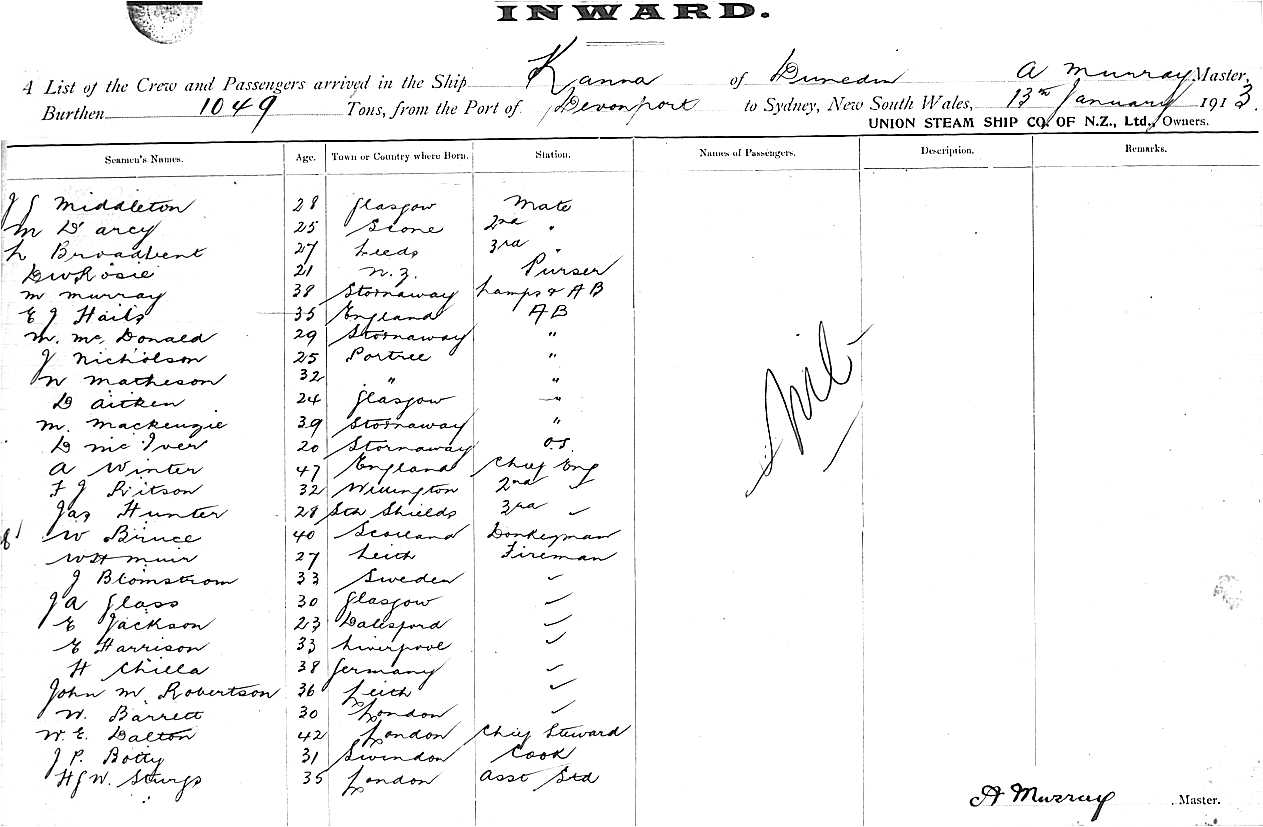 INWARD.
A List of the Crew and Passengers arrived in the Ship Kanna of Dunedin A Murray Master,
Burthen 1049 Tons, from the Port of Devonport to Sydney, New South Wales, 13th January 1913.
UNION STEAM SHIP CO. OF N.Z., Ltd., Owners.
Seamen's Names. Age. Town or Country where Born. Station. Names of Passengers. Description. Remarks.
J J Middleton 28 Glasgow Mate
M D'arcy 25 Stone 2nd "
L Broadbent 27 Leeds 3rd "
D W Rosie 21 N.Z. Purser
M Murray 38 Stornaway Lamps & AB
E J Hails 35 England AB
M. Mc Donald 29 Stornaway "
J Nicholson 25 Portree "
N Matheson 32 " "
D Aitken 24 Glasgow "
M. Mackenzie 39 Stornaway "
D McIver 20 Stornaway O.S.
A Winter 47 England Chief Eng
F J Ritson 32 Willington 2nd "
Jas Hunter 28 Sth Shields 3rd "
W Bruce 40 Scotland Donkeyman
W H Muir 27 Leith Fireman
J Blomstrom 33 Sweden "
J A Glass 30 Glasgow "
E Jackson 23 Dalesford "
E Harrison 33 Liverpool "
H Chilla 38 Germany "
John M. Robertson 36 Leith "
W. Barrett 30 London "
W. E. Dalton 42 London Chief Steward
J P. Botty 31 Swindon Cook
H J W. Sturgs 35 London Asst Std
Nil
A Murray Master.